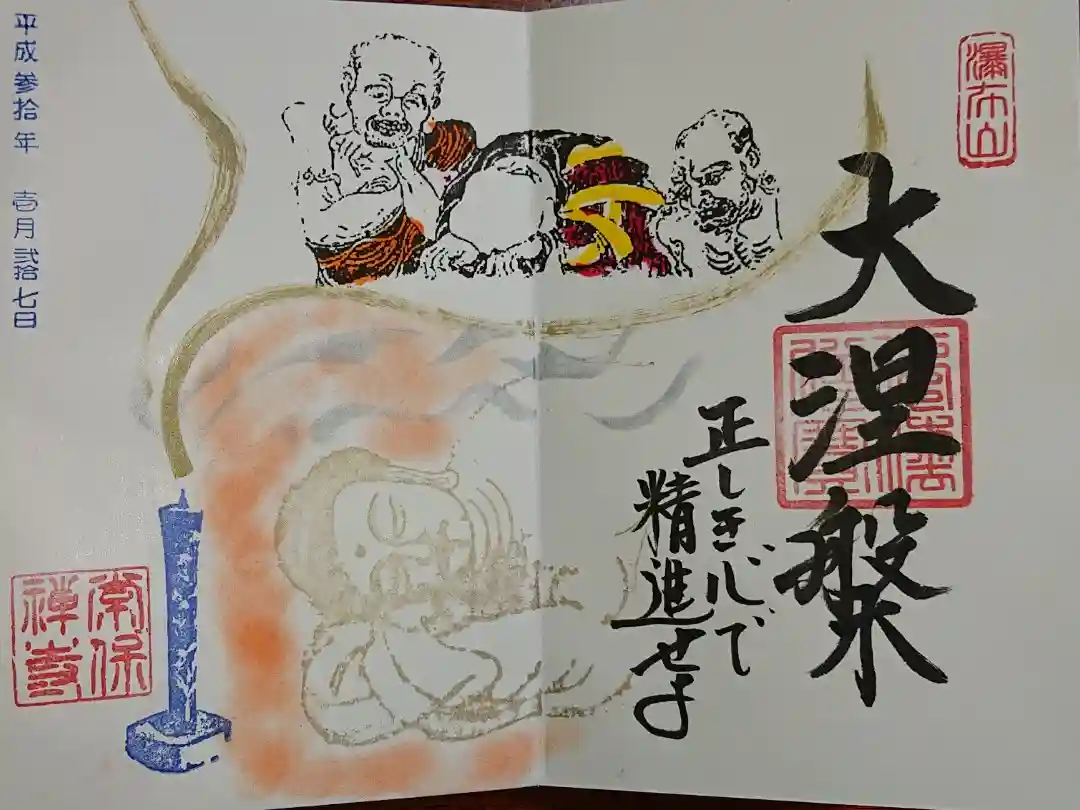 瀑布山
大涅槃
正しき心で
精進せよ
平成参拾年 壱月弐拾七日